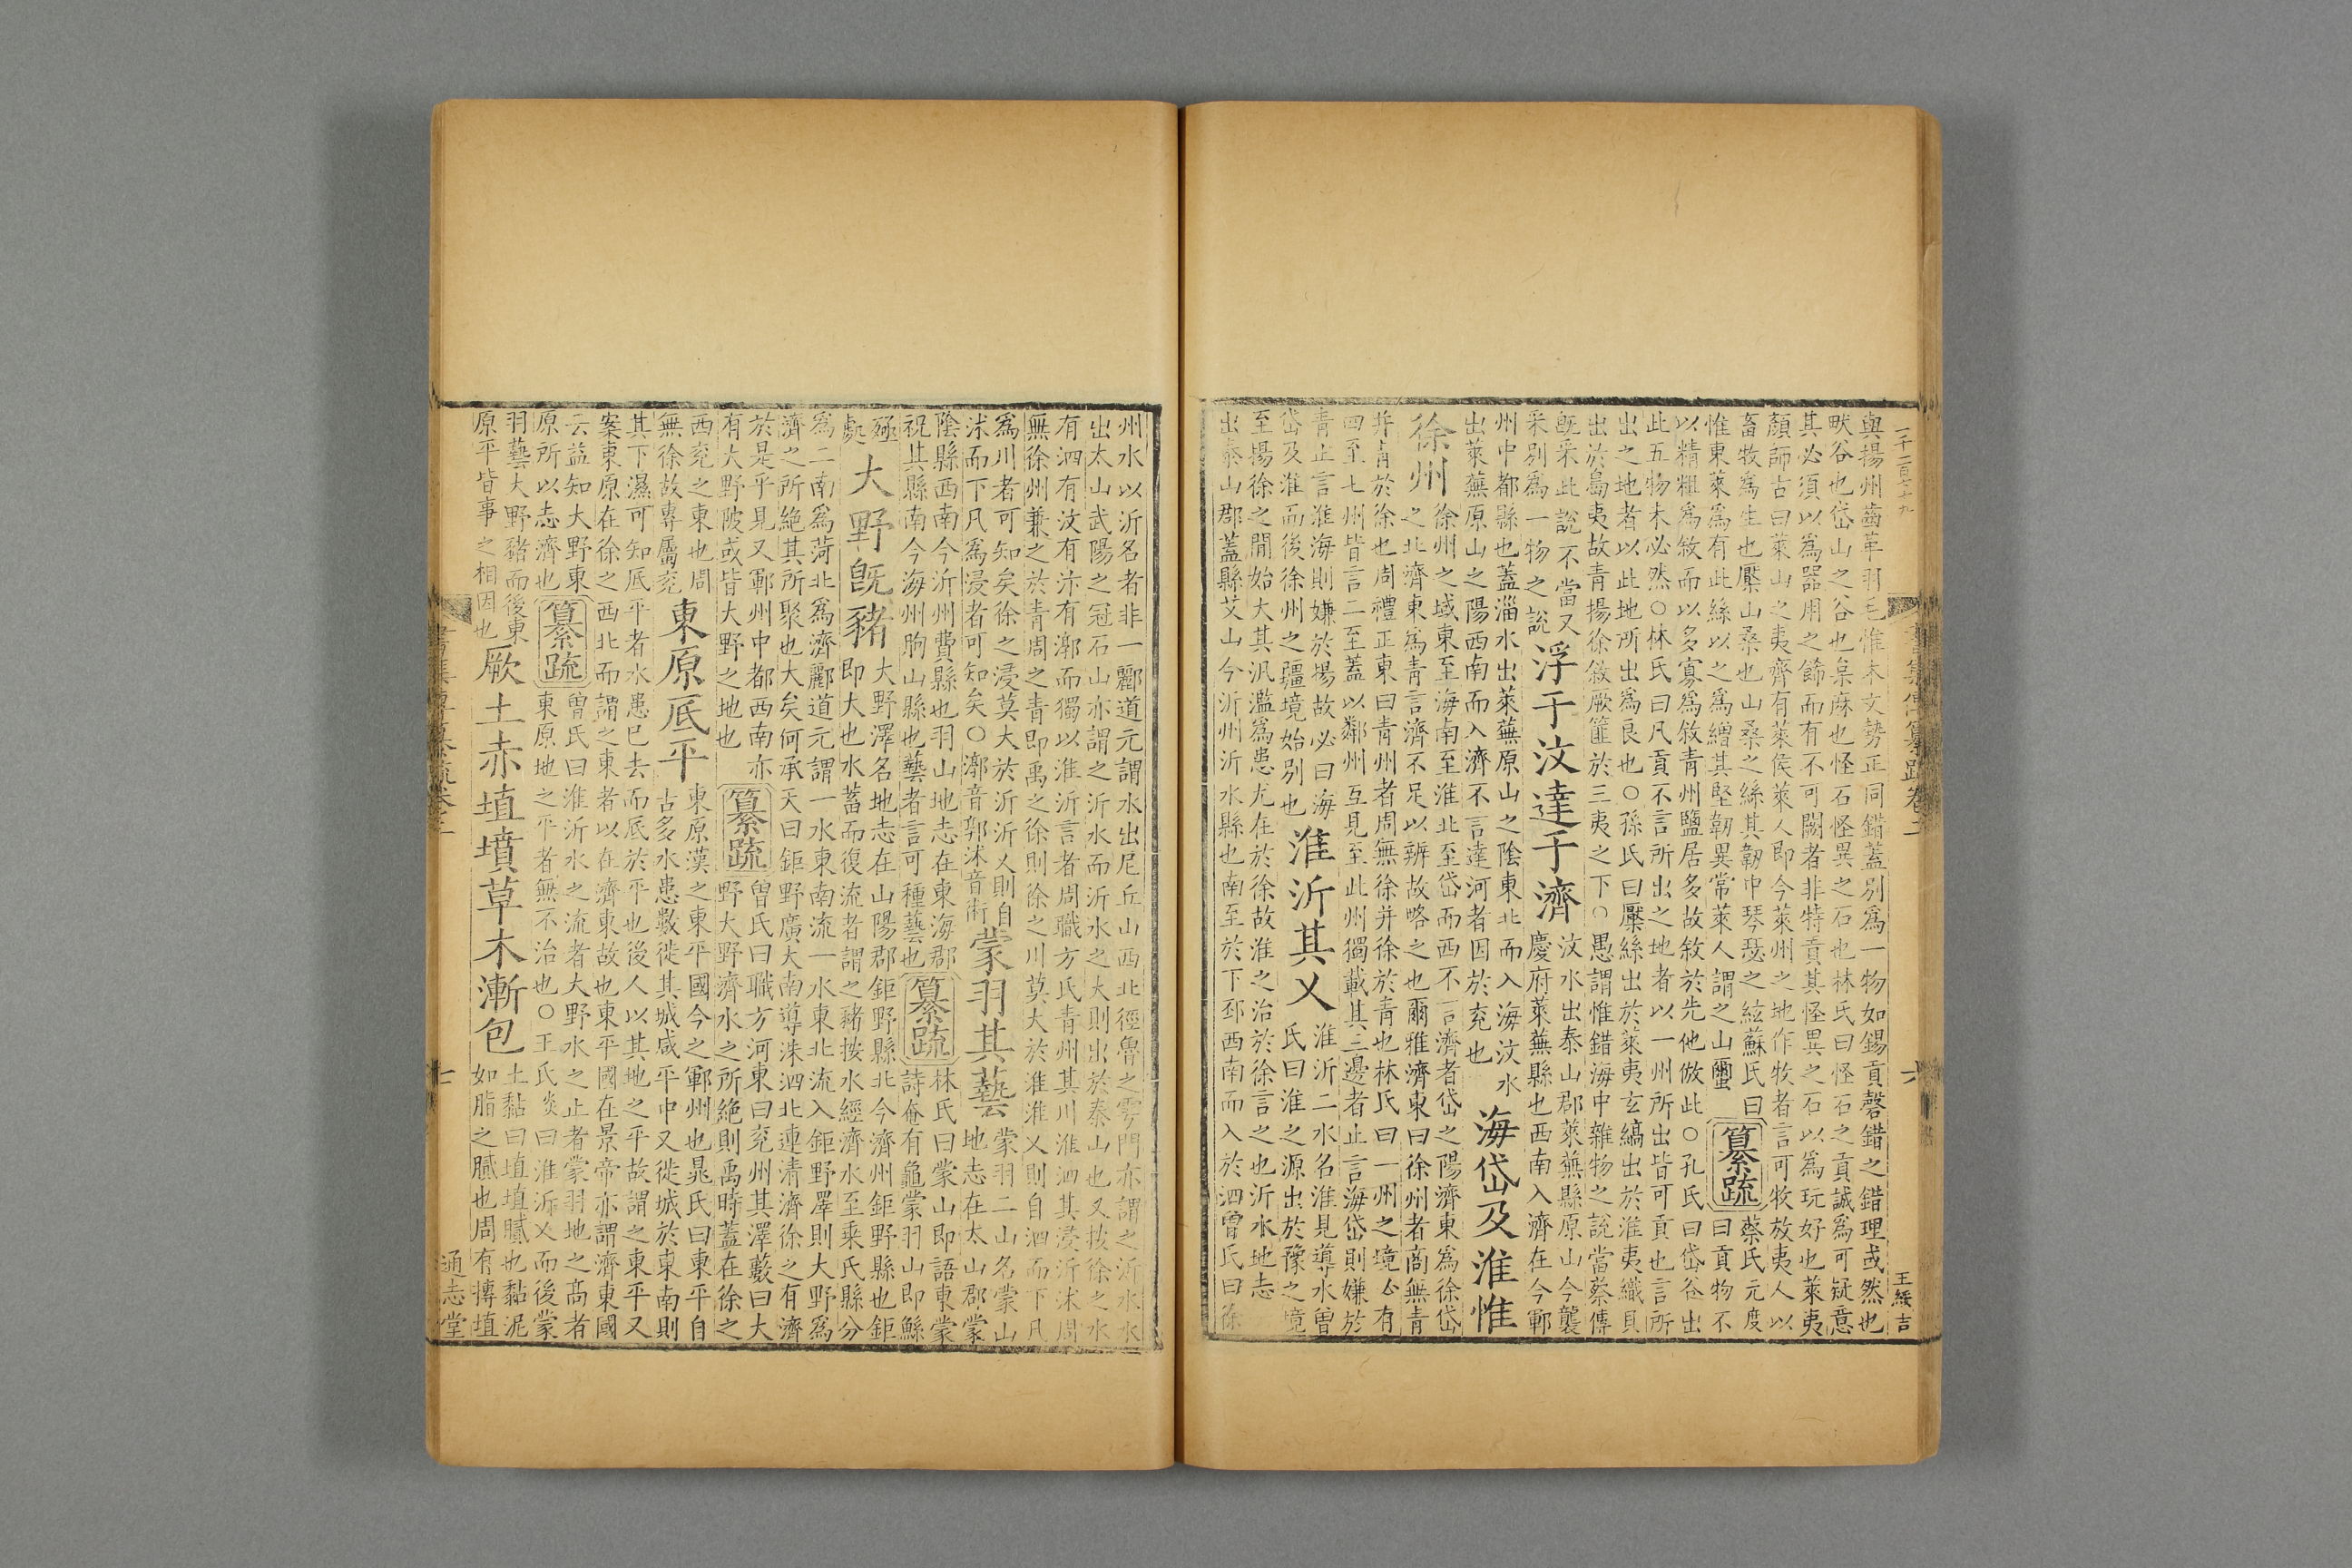 一千二百七十九
與揚州齒革羽毛惟木文勢正同錯蓋別爲一物如錫貢磬錯之錯理或然也
畎谷也岱山之谷也枲麻也怪石怪異之石也林氏曰怪石之貢誠爲可疑意
其必須以爲器用之飾而有不可闕者非特貢其怪異之石以爲玩好也萊夷
顏師古曰萊山之夷齊有萊侯萊人即今萊州之地作牧者言可牧放夷人以
畜牧爲生也檿山桑也山桑之絲其韌中琴瑟之絃蘇氏曰
惟東萊爲有此絲以之爲繒其堅韌異常萊人謂之山蠒
纂疏
蔡氏元度
曰貢物不
以精粗爲敘而以多寡爲敘青州鹽居多故敘於先他倣此○孔氏曰岱谷出
此五物未必然○林氏曰凡貢不言所出之地者以一州所出皆可貢也言所
出之地者以此地所出爲良也○孫氏曰檿絲出於萊夷玄縞出於淮夷織貝
出於島夷故青揚徐敘厥篚於三夷之下○愚謂惟錯海中雜物之說當蔡傳
旣采此說不當又
采別爲一物之說
浮于汶達于濟
汶水出泰山郡萊蕪縣原山今襲
慶府萊蕪縣也西南入濟在今鄆
州中都縣也蓋淄水出萊蕪原山之陰東北而入海汶水
出萊蕪原山之陽西南而入濟不言達河者因於兖也
海岱及淮惟
徐州
徐州之域東至海南至淮北至岱而西不言濟者岱之陽濟東爲徐岱
之北濟東爲青言濟不足以辨故略之也爾雅濟東曰徐州者商無青
并青於徐也周禮正東曰青州者周無徐并徐於青也林氏曰一州之境必有
四至七州皆言二至蓋以鄰州互見至此州獨載其三邊者止言海岱則嫌於
青止言淮海則嫌於揚故必曰海
岱及淮而後徐州之疆境始別也
淮沂其乂
淮沂二水名淮見導水曾
氏曰淮之源出於豫之境
至揚徐之間始大其汎濫爲患尤在於徐故淮之治於徐言之也沂水地志
出泰山郡蓋縣艾山今沂州沂水縣也南至於下邳西南而入於泗曾氏曰徐
書集傳纂疏卷二
六
王綏吉
州水以沂名者非一酈道元謂水出尼丘山西北徑魯之雩門亦謂之沂水水
出太山武陽之冠石山亦謂之沂水而沂水之大則出於泰山也又按徐之水
有泗有汶有汴有漷而獨以淮沂言者周職方氏青州其川淮泗其浸沂沭周
無徐州兼之於青周之青即禹之徐則徐之川莫大於淮淮乂則自泗而下凡
爲川者可知矣徐之浸莫大於沂沂乂則自
沭而下凡爲浸者可知矣○漷音郭沭音術
蒙羽其藝
蒙羽二山名蒙山
地志在太山郡蒙
陰縣西南今沂州費縣也羽山地志在東海郡
祝其縣南今海州朐山縣也藝者言可種藝也
纂疏
林氏曰蒙山即語東蒙
詩奄有龜蒙羽山即鯀
殛
處
大野旣豬
大野澤名地志在山陽郡鉅野縣北今濟州鉅野縣也鉅
即大也水蓄而復流者謂之豬按水經濟水至乘氏縣分
爲二南爲菏北爲濟酈道元謂一水東南流一水東北流入鉅野澤則大野爲
濟之所絶其所聚也大矣何承天曰鉅野廣大南導洙泗北連清濟徐之有濟
於是乎見又鄆州中都西南亦
有大野陂或皆大野之地也
纂疏
曾氏曰職方河東曰兖州其澤藪曰大
野大野濟水之所絶則禹時蓋在徐之
西兖之東也周
無徐故專屬兖
東原厎平
東原漢之東平國今之鄆州也晁氏曰東平自
古多水患數徙其城咸平中又徙城於東南則
其下濕可知厎平者水患已去而厎於平也後人以其地之平故謂之東平又
案東原在徐之西北而謂之東者以在濟東故也東平國在景帝亦謂濟東國
云益知大野東
原所以志濟也
纂疏
曾氏曰淮沂水之流者大野水之止者蒙羽地之高者
東原地之平者無不治也○王氏炎曰淮沂乂而後蒙
羽藝大野豬而後東
原平皆事之相因也
厥土赤埴墳草木漸包
土黏曰埴埴膩也黏泥
如脂之膩也周有摶埴
書集傳纂疏卷二
七
通志堂